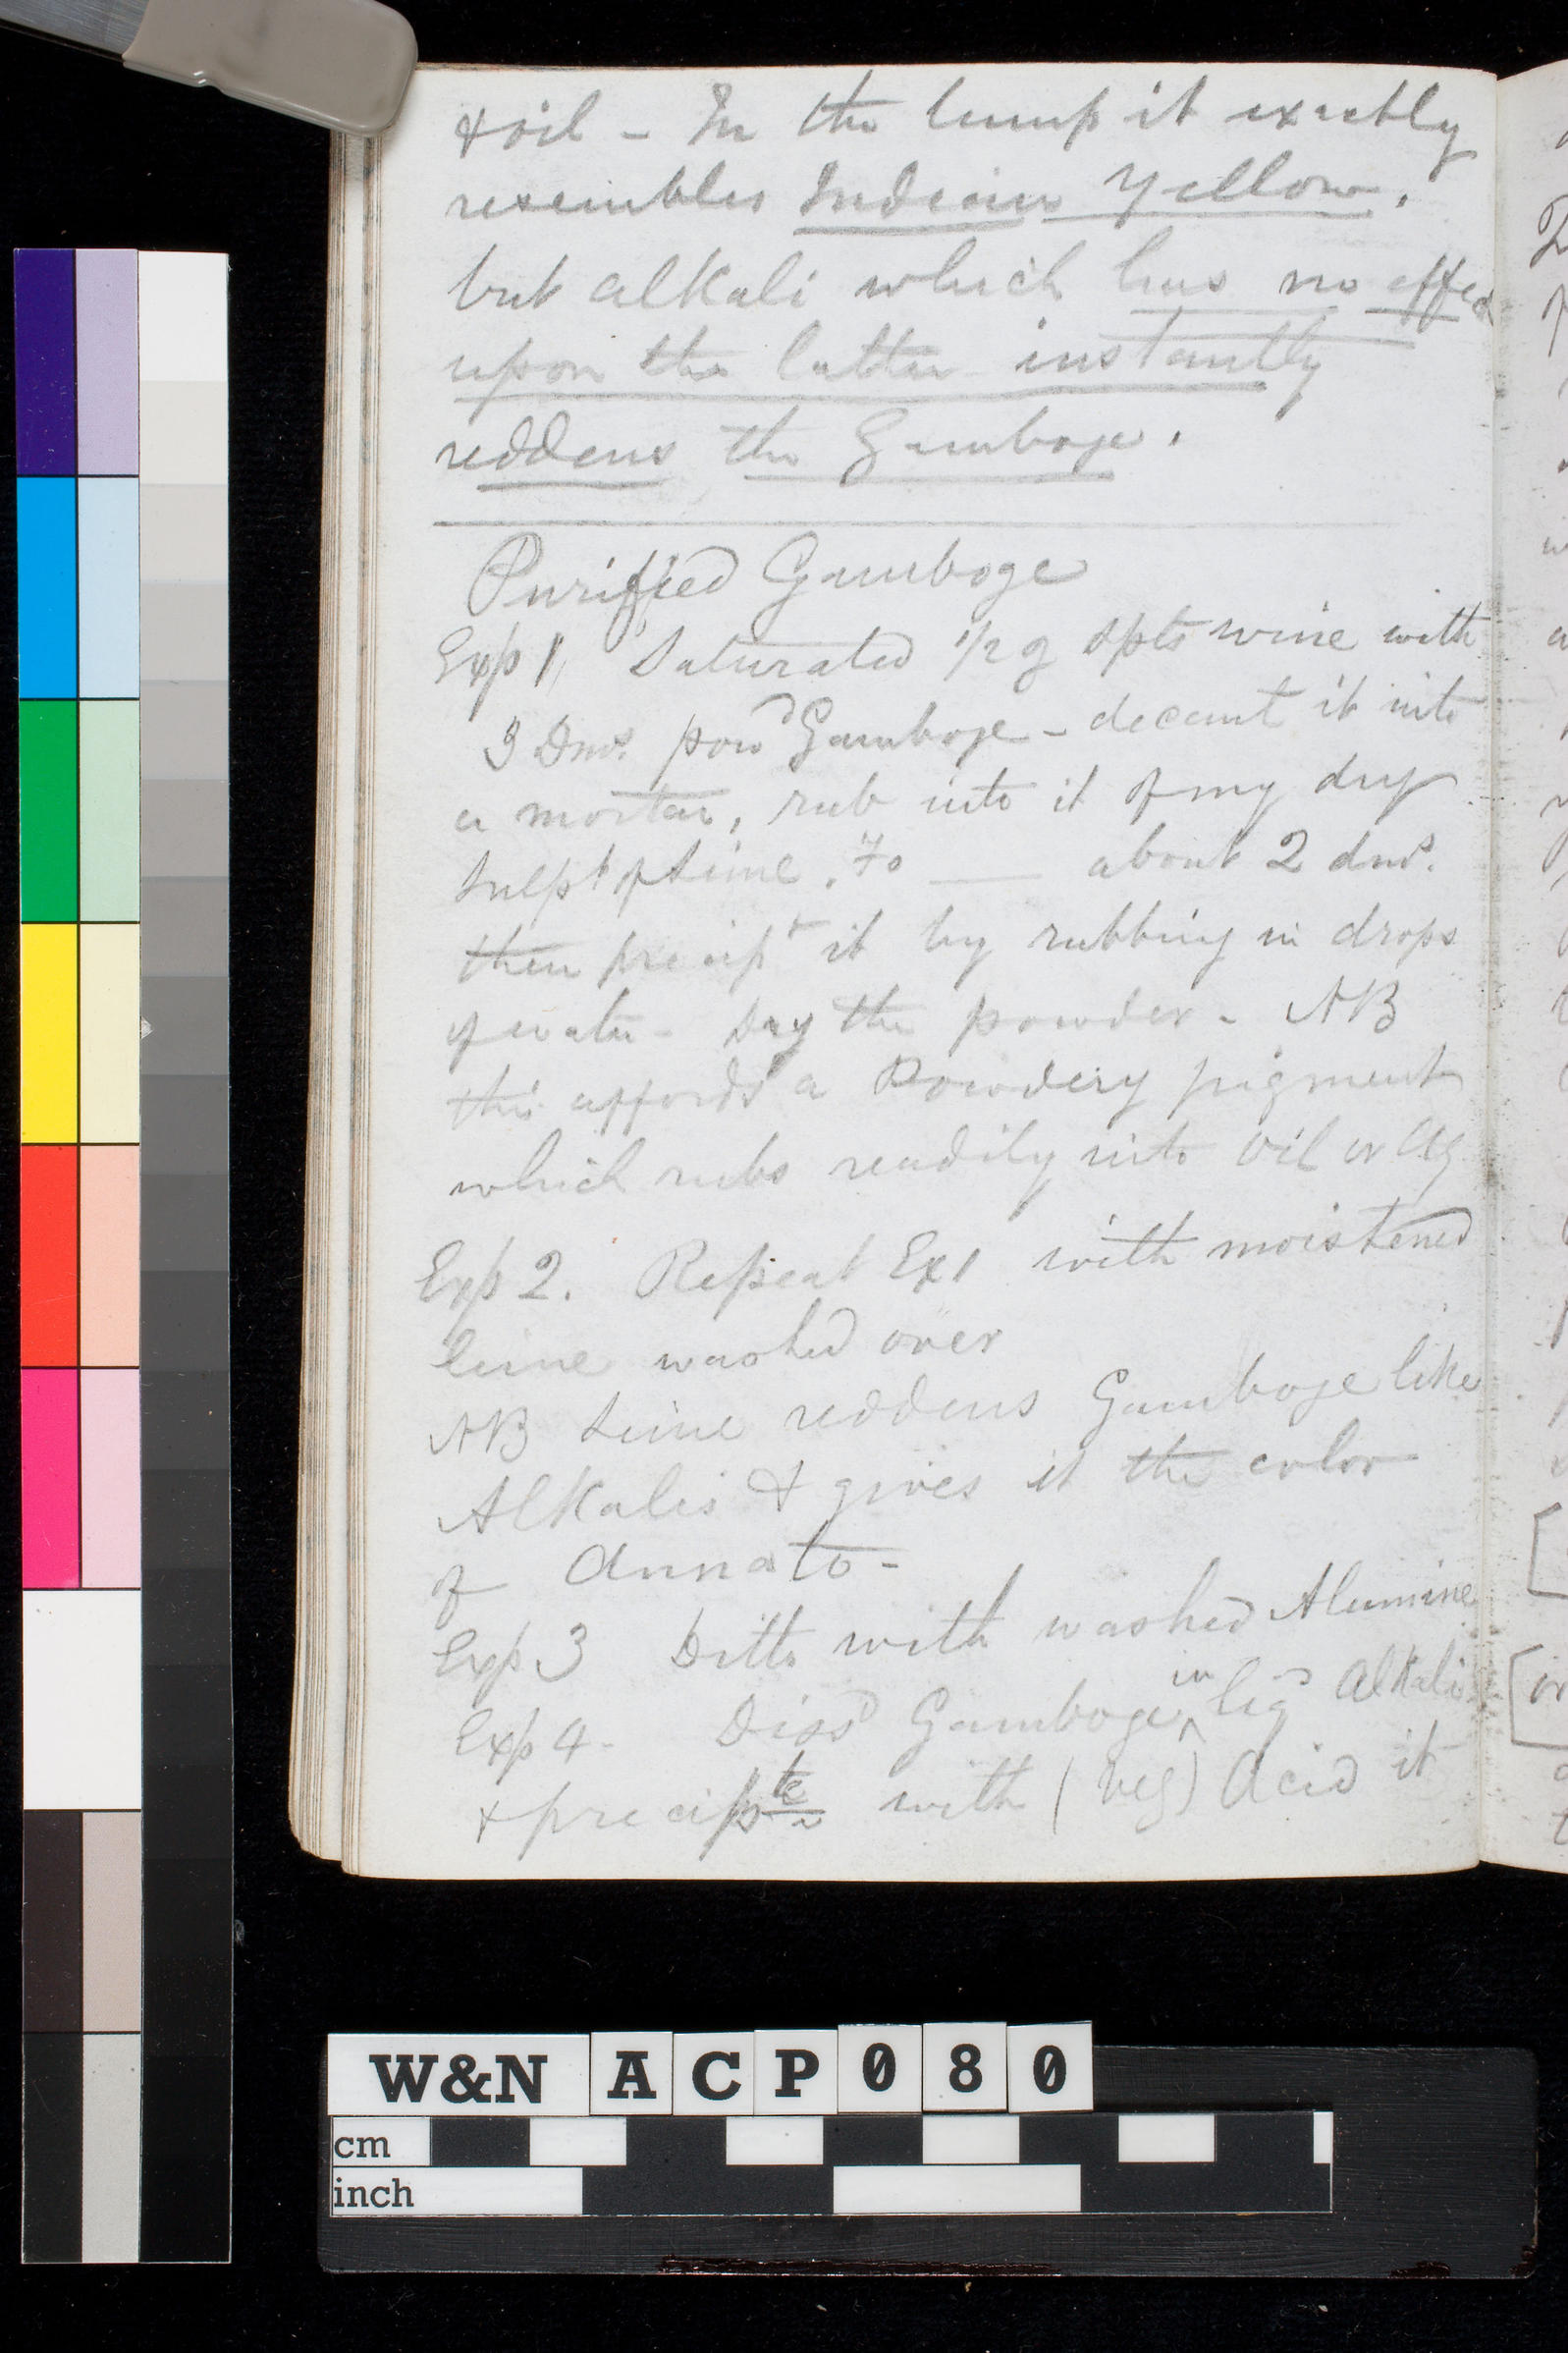 & oil – In the lump it exactly
resembles Indian Yellow.
but alkali which has no effect
upon the latter instantly
reddens the Gamboge.
Purified Gamboge
Exp 1, Saturated 1/2 g Spts wine with
3 Dms. powd Gamboge – decant it into
a mortar, rub into it of my dry
Sulpt of Lime, about 2 dms.
then precipt it by rubbing in drops
of water – Dry the powder – NB
this affords a Powdery pigment
which rubs readily into Oil or Aq
Exp 2. Repeat Ex 1 with moistened
lime washed over
NB Lime reddens Gamboge like
Alkalis & gives it the color
of Annato –
Exp 3 Ditto with washed Alumine
Exp 4. Dissd Gamboge in liqd Alkali
& precipte with (veg) Acid it
W&N ACP080
cm
inch